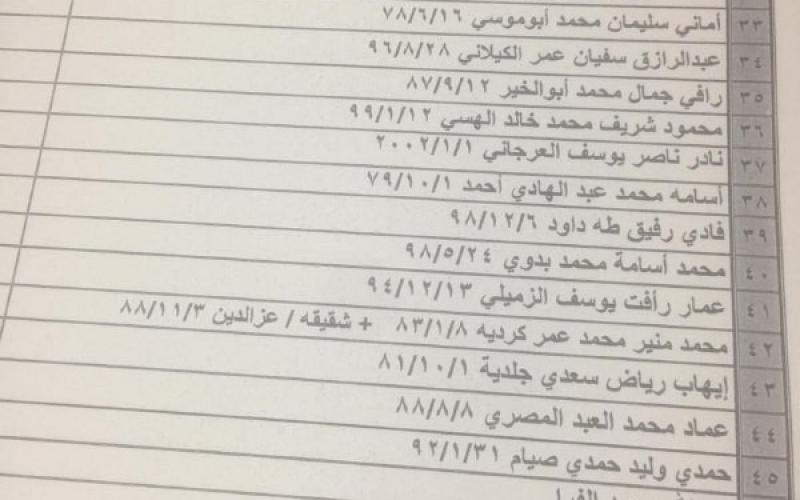 ٣٣ أماني سليمان محمد أبوموسي ٧٨/٦/١٦
٣٤ عبدالرازق سفيان عمر الكيلاني ٩٦/٨/٢٨
٣٥ رافي جمال محمد أبوالخير ٨٧/٩/١٢
٣٦ محمود شريف محمد خالد الهسي ٩٩/١/١٢
٣٧ نادر ناصر يوسف العرجاني ٢٠٠٢/١/١
٣٨ أسامه محمد عبد الهادي أحمد ٧٩/١٠/١
٣٩ فادي رفيق طه داود ٩٨/١٢/٦
٤٠ محمد أسامة محمد بدوي ٩٨/٥/٢٤
٤١ عمار رأفت يوسف الزميلي ٩٤/١٢/١٣
٤٢ محمد منير محمد عمر كرديه ٨٣/١/٨ + شقيقه / عزالدين ٨٨/١١/٣
٤٣ إيهاب رياض سعدي جلدية ٨١/١٠/١
٤٤ عماد محمد العبد المصري ٨٨/٨/٨
٤٥ حمدي وليد حمدي صيام ٩٢/١/٣١